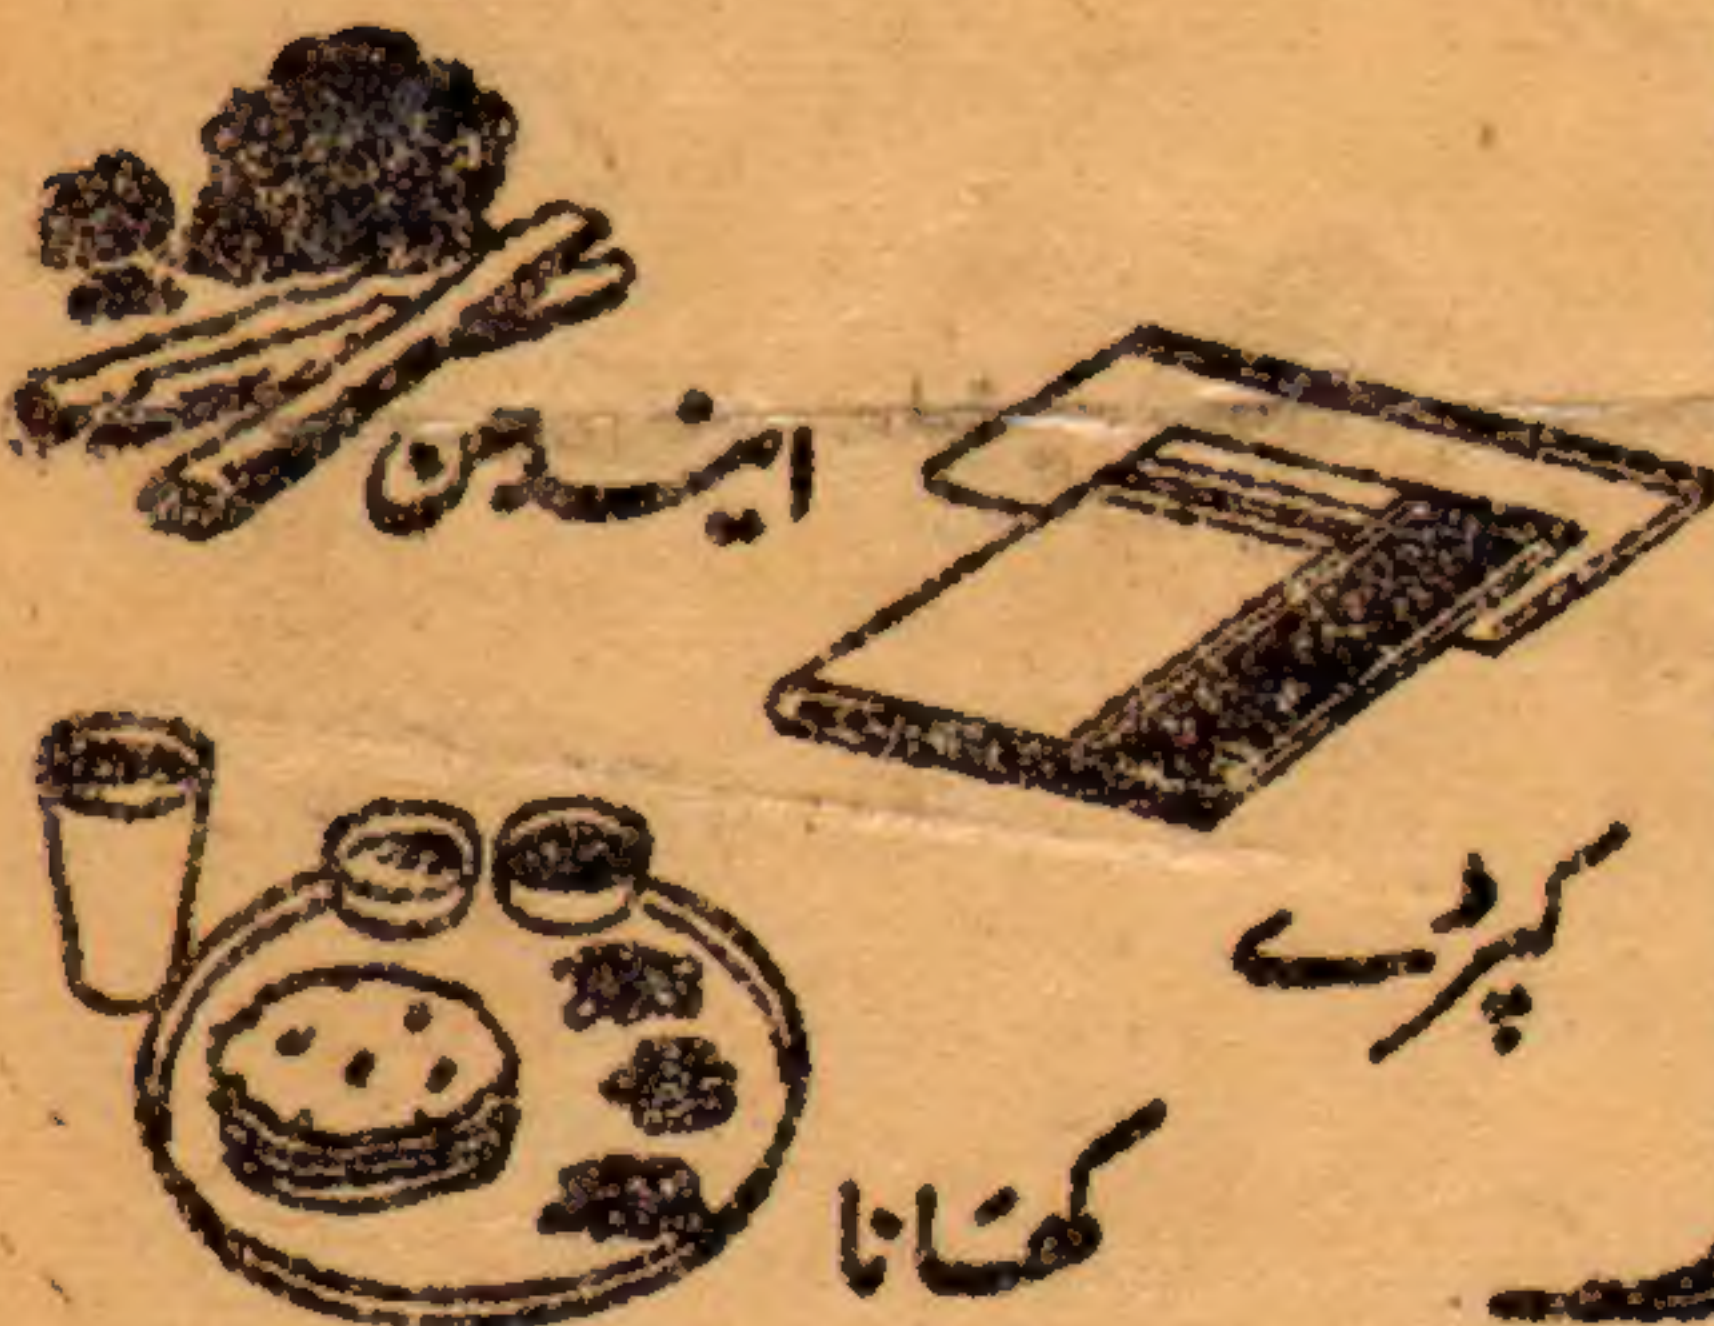 ایندھن
کپڑے
کھانا